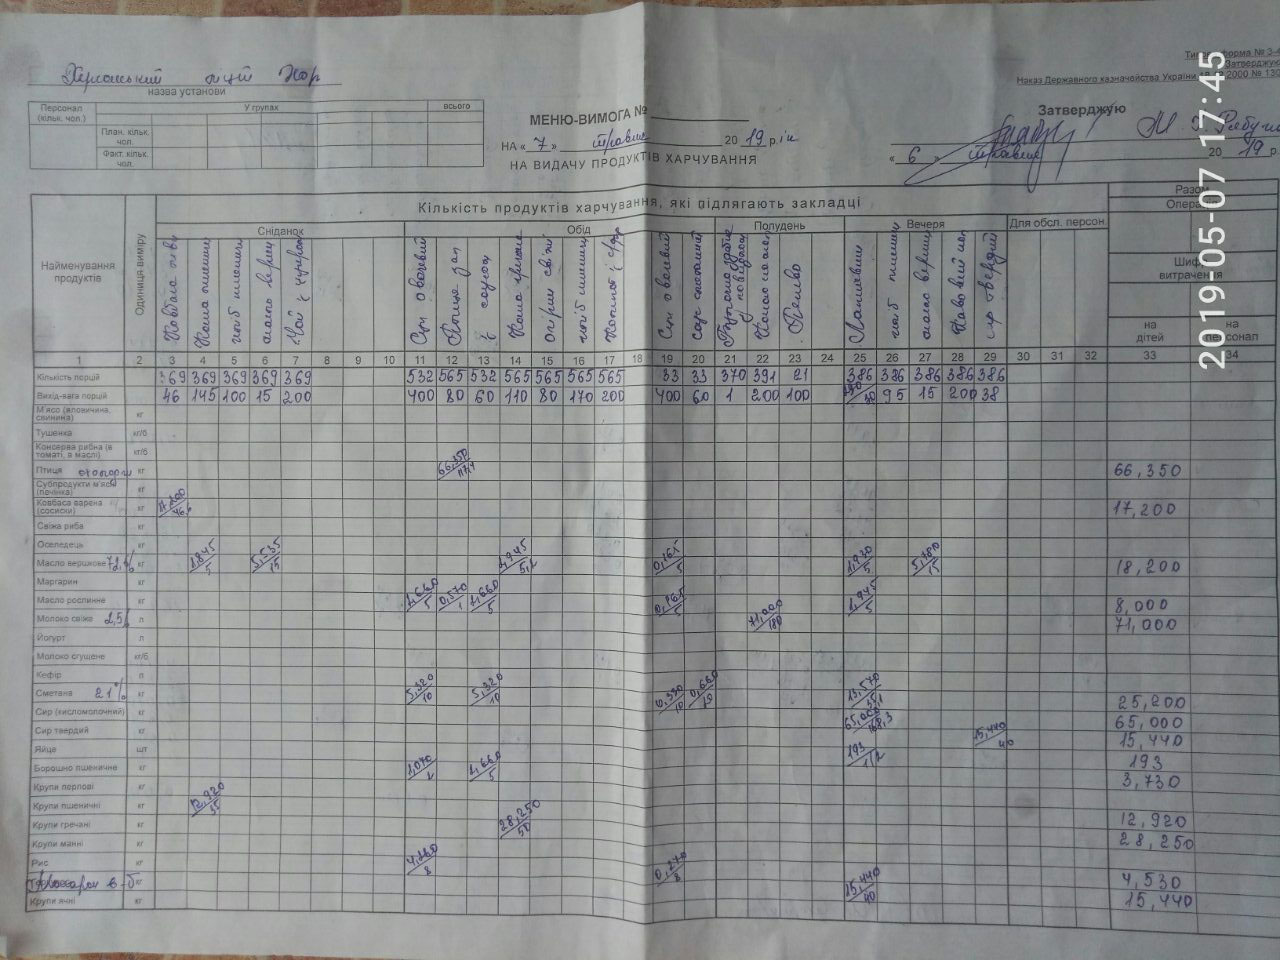 Типова форма № 3-
Затверджую
Наказ Державного казначейства України 2000 № 130
2019-05-07 17:45
Херсонський ліцей
назва установи
Персонал (кільк. чол.)
У групах
всього
План. кільк. чол.
Факт. кільк. чол.
МЕНЮ-ВИМОГА №
НА « 7 » травня 20 19 рік
НА ВИДАЧУ ПРОДУКТІВ ХАРЧУВАННЯ
Затверджую
« 6 » травня 20 19 р.
Найменування продуктів
Одиниця виміру
Кількість продуктів харчування, які підлягають закладці
Разом
Сніданок Обід Полудень Вечеря Для обсл. персон.
Шифр витрачення
на дітей
на персонал
Ковбаса
Каша пшенич
хліб пшенич
масло верш
Чай з цукром
Суп овочевий
Птиця зап
в соусі
Каша гречана
огірки свіжі
хліб пшенич
Суп овочевий
Какао на мол
Печиво
хліб пшенич
масло верш
сир твердий
1 2 3 4 5 6 7 8 9 10 11 12 13 14 15 16 17 18 19 20 21 22 23 24 25 26 27 28 29 30 31 32 33 34
Кількість порцій 369 369 369 369 369 532 565 532 565 565 565 565 33 33 370 391 21 386 386 386 386 386
Вихід-вага порцій 46 145 100 15 200 400 80 60 110 80 170 200 400 60 1 200 100 95 15 200 38
М'ясо (яловичина, свинина) кг
Тушенка кг/б
Консерва рибна (в томаті, в маслі) кг/б
Птиця кг 66,350 66,350
Субпродукти м'ясні (печінка) кг
Ковбаса варена (сосиски) кг 17,200 17,200
Свіжа риба кг
Оселедець кг
Масло вершкове кг 1,845/5 5,535/15 0,165/5 1,930/5 5,780/15 18,200
Маргарин кг
Масло рослинне кг 2,660/5 0,570/1 2,660/5 0,165/5 1,945/5 8,000
Молоко свіже 2,5% л 71,000/180 71,000
Йогурт л
Молоко сгущене кг/б
Кефір л
Сметана 21% кг 5,320/10 5,320/10 0,330/10 0,660/20 13,570/35,1 25,200
Сир (кисломолочний) кг 65,000/168,3 65,000
Сир твердий кг 15,440/40 15,440
Яйце шт 193/1/2 193
Борошно пшеничне кг 1,070/2 2,660/5 3,730
Крупи перлові кг
Крупи пшеничні кг 12,920/35 12,920
Крупи гречані кг 28,250/50 28,250
Крупи манні кг
Рис кг 4,260/8 0,270/8 4,530
Макарон в-б кг 15,440/40 15,440
Крупи ячні кг